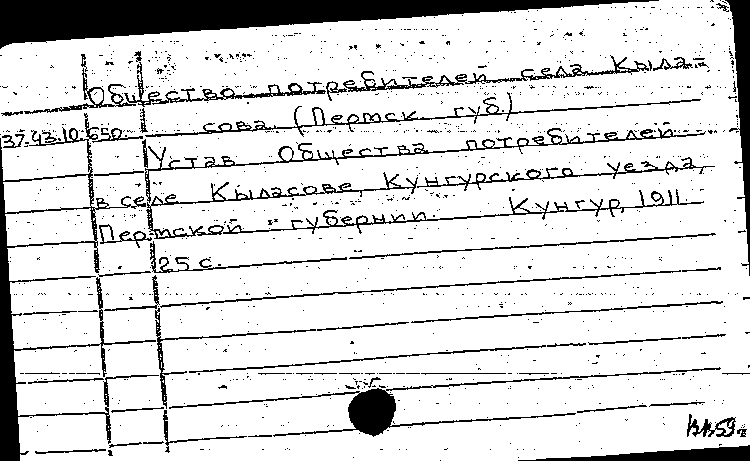 Общество потребителей села Кыла=
37.43.10.650 сова. (Пермск. губ.)
Устав Общества потребителей
в селе Кыласове, Кунгурского уезда,
Пермской губернии. Кунгур, 1911.
25 с.